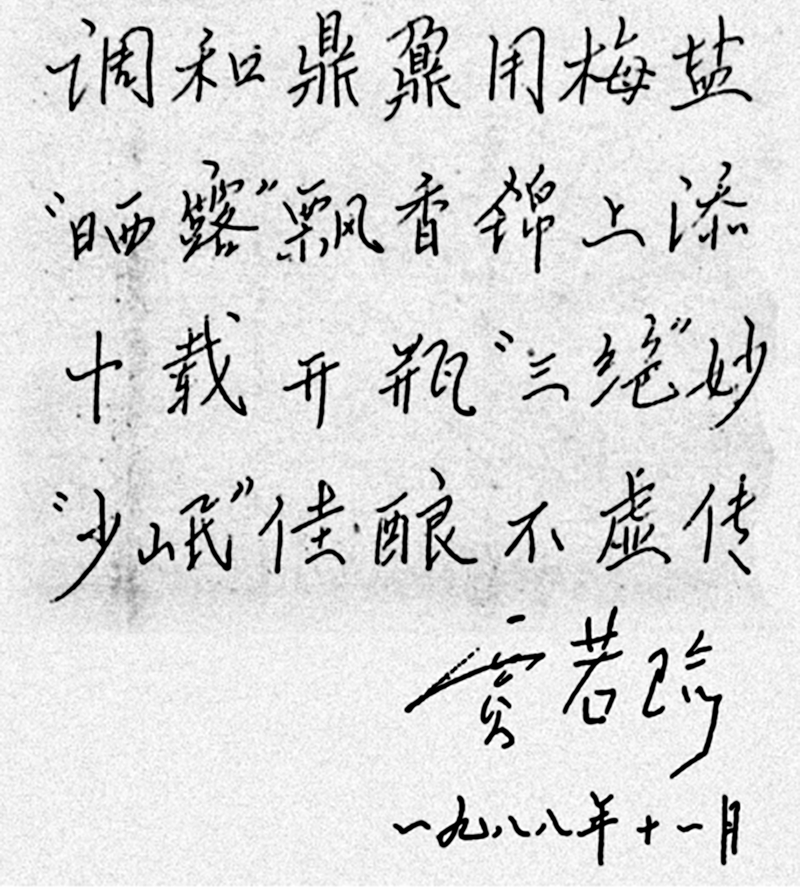 调和鼎鼐用梅盐
“晒露”飘香锦上添
十载开瓶“三绝”妙
“少岷”佳酿不虚传
若瑜
一九八八年十一月